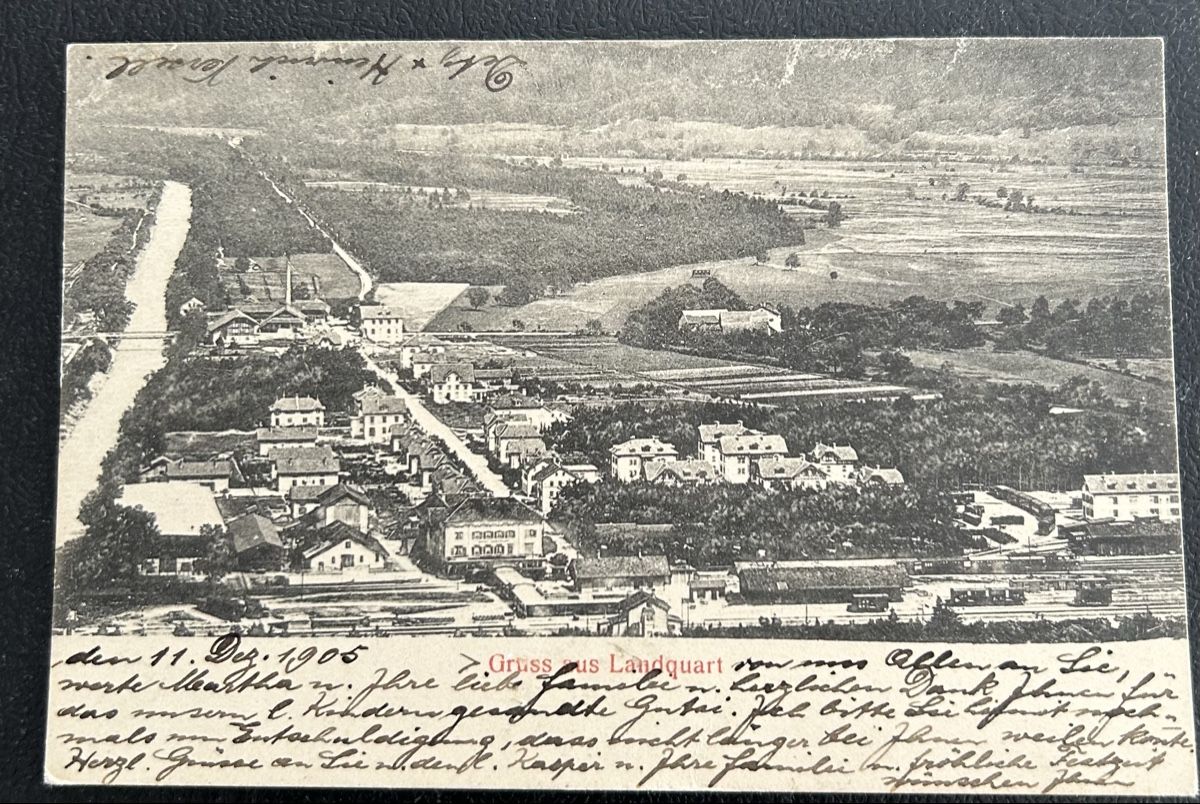 den 11. Dez. 1905 > Gruss aus Landquart von uns Allen an Sie,
werte Martha u. Ihre liebe Familie u. herzlichen Dank Ihnen für
das unsern l. Kindern gesandte Gutsi. Ich bitte Sie hiemit noch-
mals um Entschuldigung, dass nicht länger bei Ihnen weilen konnte
Herzl. Grüsse an Sie u. den l. Kasper u. Ihre Familie u. fröhliche Festzeit
wünschen Ihnen
Heinrich